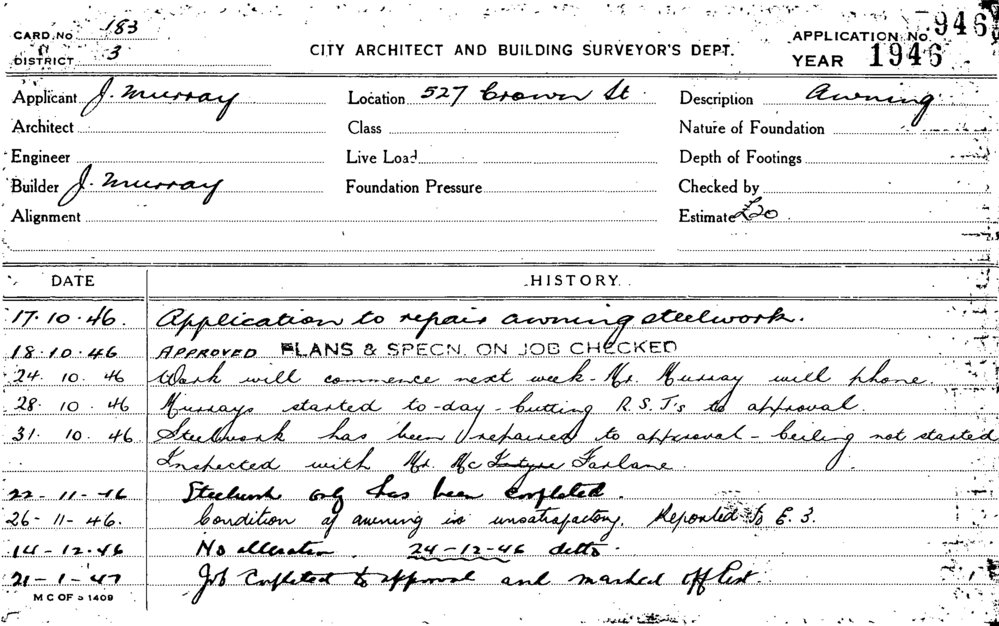 CARD. No 183
DISTRICT 3
CITY ARCHITECT AND BUILDING SURVEYOR'S DEPT.
APPLICATION No. 946
YEAR 1946
Applicant J. Murray Location 527 Crown St. Description Awning
Architect Class Nature of Foundation
Engineer Live Load Depth of Footings
Builder J. Murray Foundation Pressure Checked by
Alignment Estimate £20
DATE HISTORY.
17.10.46. Application to repair awning steelwork.
18.10.46 APPROVED PLANS & SPECN. ON JOB CHECKED
24. 10. 46 Work will commence next week - Mr. Murray will phone.
28. 10. 46 Murrays started to-day - cutting R.S.J's to approval.
31. 10. 46. Steelwork has been repaired to approval - Ceiling not started
Inspected with Mr. Mc Intyre Farlane.
22-11-46 Steelwork only has been completed.
26-11-46. Condition of awning is unsatisfactory. Reported to E. 3.
14-12-46 No alteration. 24-12-46 ditto.
21-1-47 Job Completed to approval and marked off list.
M C OF S 1409